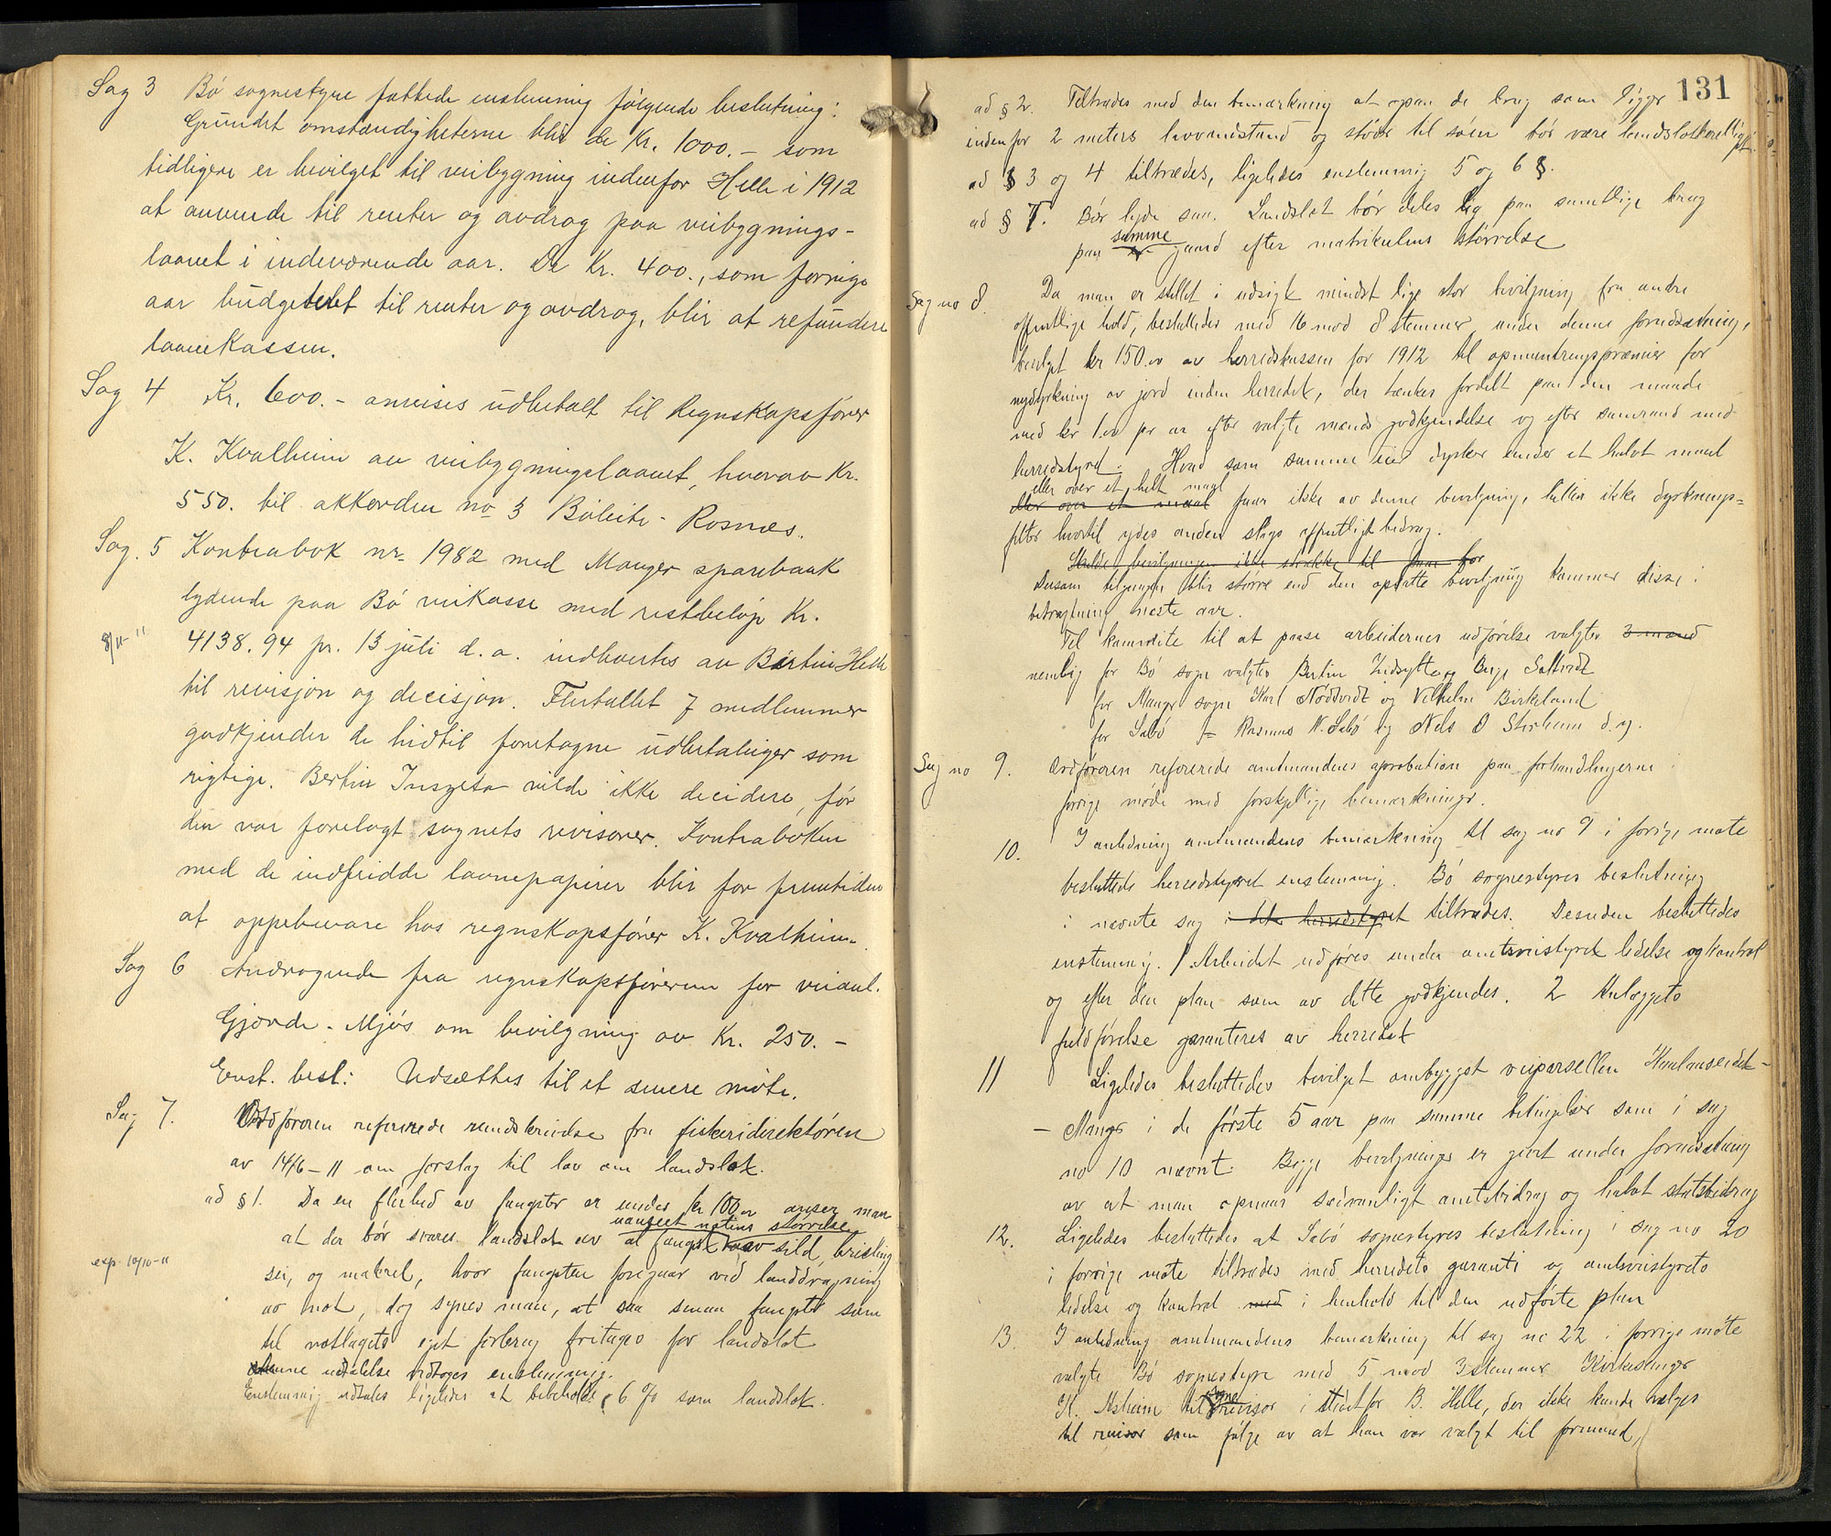 Sag 3 Bö sognestyre fattede enstemmig følgende beslutning:
Grundet omstændigheterne blir de Kr. 1000.- som
tidligere er bevilget til veibygning indenfor Helle i 1912
at anvende til renter og avdrag paa veibygnings-
laanet i indeværende aar. De Kr. 400., som forrige
aar budgetteret til renter og avdrag, blir at refundere
laanekassen.
Sag 4 Kr. 600.- anvises udbetalt til Regnskapsfører
K. Kvalheim av veibygningslaanet, hvorav Kr.
550. til akkorden no 3 Böleite - Rosnæs.
Sag. 5 Kontrabok nr 1982 med Manger sparebank
lydende paa Bö veikasse med restbeløp Kr.
8/11-11 4138.94 pr. 13 juli d.a. indhentes av Bertin Helle
til revisjon og decisjon. Flertallet 7 medlemmer
godkjender de hidtil foretagne udbetalinger som
rigtige. Bertin vilde ikke decidere, før
den var forelagt sognets revisorer. Kontraboken
med de indfridde laanepapirer blir for fremtiden
at oppebevare hos regnskapsfører K. Kvalheim.
Sag 6 Andragende fra regnskapsføreren for veianl.
Gjerde - Mjøs om bevilgning av Kr. 250.-
Enst. besl: Udsættes til et senere møte.
Sag 7. Ordføreren refererede rundskrivelse fra fiskeridirektören
av 14/6-11 om forslag til lov om landslot.
ad § 1. Da en flerhed av fangster er under kr 100.00 anser man
uanseet notens størrelse
at der bör svares landslot av al fangst av sild, brisling
sei, og makrel, hvor fangsten foregaar ved landdragning
exp. 10/10-11
av not, dog synes man, at saa smaa fangster som
til notlagets eget forbrug fritages for landslot
denne udtalelse vedtoges enstemmig.
Enstemmig udtales ligeledes at beholde 6 % som landslot.
131
ad § 2. Tiltrædes med den bemærkning at ogsaa de brug som ligger
indenfor 2 meters havvandstand og støder til søen bør være landslotberettiget.
ad § 3 og 4 tiltrædes, ligeledes enstemmig 5 og 6 §.
ad § 7. Bør lyde saa. Landslot bør deles lig paa samtlige brug
samme
paa gaard efter matrikulens størrelse
Sag no 8. Da man er stillet i udsigt mindst lige stor bevilgning fra andre
offentlige hold, besluttedes med 16 mod 8 stemmer under denne forudsætning,
bevilget kr 150.00 av herredskassen for 1912 til opmuntringspræmier for
nydyrkning av jord inden herredet, der tænkes fordelt paa den maade
med kr 1.00 pr ar efter valgte mænds godkjendelse og efter samraad med
herredstyret. Hvad som samme eier dyrker under et halvt maal
eller over et helt maal
eller over et maal faar ikke av denne bevilgning, heller ikke dyrknings-
felter hvortil ydes anden slags offentligt bidrag.
Skulde bevilgningen ikke strække til
Dersom tilgangen blir større end den opsatte bevilgning kommer disse i
betragtning næste aar.
Til komite til at paase arbeidernes udførelse valgtes 3 mænd
nemlig for Bö sogn valgtes Bertin og Berge
for Manger sogn Karl Nøddtvedt og Vilhelm Birkeland
for Sæbö Rasmus N. Sæbö og Nels O d.y.
Sag no 9. Ordføreren refererede amtmandens aprobation paa forhandlingerne i
forrige møde med forskjellige bemærkninger.
10. I anledning amtmandens bemærkning til sag no 9 i forrige møte
besluttede herredstyret enstemmig. Bö sognestyres beslutning
i nævnte sag i det herredstyret tiltrædes. Desuden besluttedes
enstemmig. 1 Arbeidet udføres under amtsveistyret ledelse og kontrol
og efter den plan som av dette godkjendes. 2 Anlæggets
fuldførelse garanteres av herredet
11 Ligeledes besluttedes bevilget ombygget veiparsellen
- Manger i de første 5 aar paa samme betingelser som i sag
no 10 nævnt. Begge bevilgninger er givet under forudsætning
av at man opnaar sædvanligt amtsbidrag og halvt statsbidrag
12. Ligeledes besluttedes at Sæbö sognestyres beslutning i sag no 20
i forrige møte tiltrædes med herredets garanti og amtsveistyrets
ledelse og kontrol med i henhold til den udførte plan
13. I anledning amtmandens bemærkning til sag no 22 i forrige møte
valgte Bö sognestyre med 5 mod 3 stemmer Kirkesanger
K. Askeim til revisor i stedet for B. Helle, der ikke kunde vælges
til revisor som følge av at han var valgt til formand,